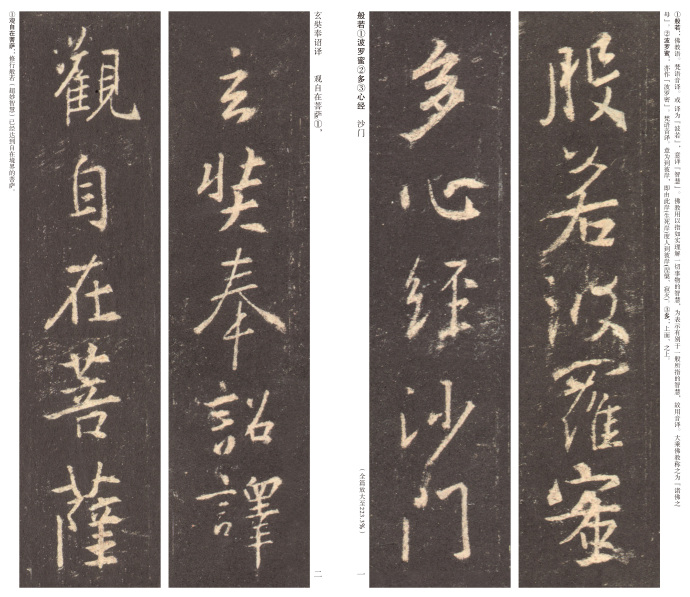 ①般若：佛教语。梵语音译，或译为「波若」，意译「智慧」。佛教用以指如实理解一切事物的智慧，为表示有别于一般所指的智慧，故用音译。大乘佛教称之为「诸佛之
母」。②波罗蜜：亦作「波罗密」。梵语音译，意为到彼岸，即由此岸（生死岸）度人到彼岸（涅槃、寂灭）。③多：上面、之上。
般若波羅蜜
多心经沙门
般若①波罗蜜②多③心经 沙门
（全篇放大至223.5%）
一
玄奘奉诏译 观自在菩萨①，
二
玄奘奉詔譯
觀自在菩薩
①观自在菩萨：修行般若（超妙智慧）已经达到自在境界的菩萨。